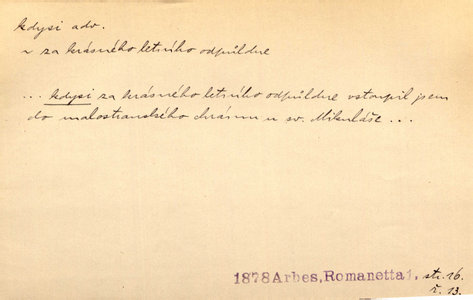 kdysi adv.
~ za krásného letního odpůldne
... kdysi za krásného letního odpůldne vstoupil jsem
do malostranského chrámu u sv. Mikuláše ...
1878 Arbes, Romanetta 1, str. 16.
ř. 13.